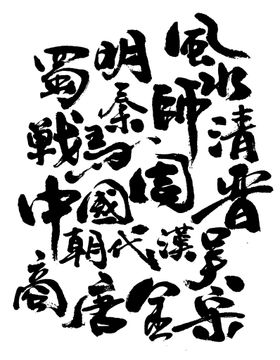 風水師
明
秦
蜀
戦馬
清
周
晋
中國
朝代
漢
宋
商
唐
金